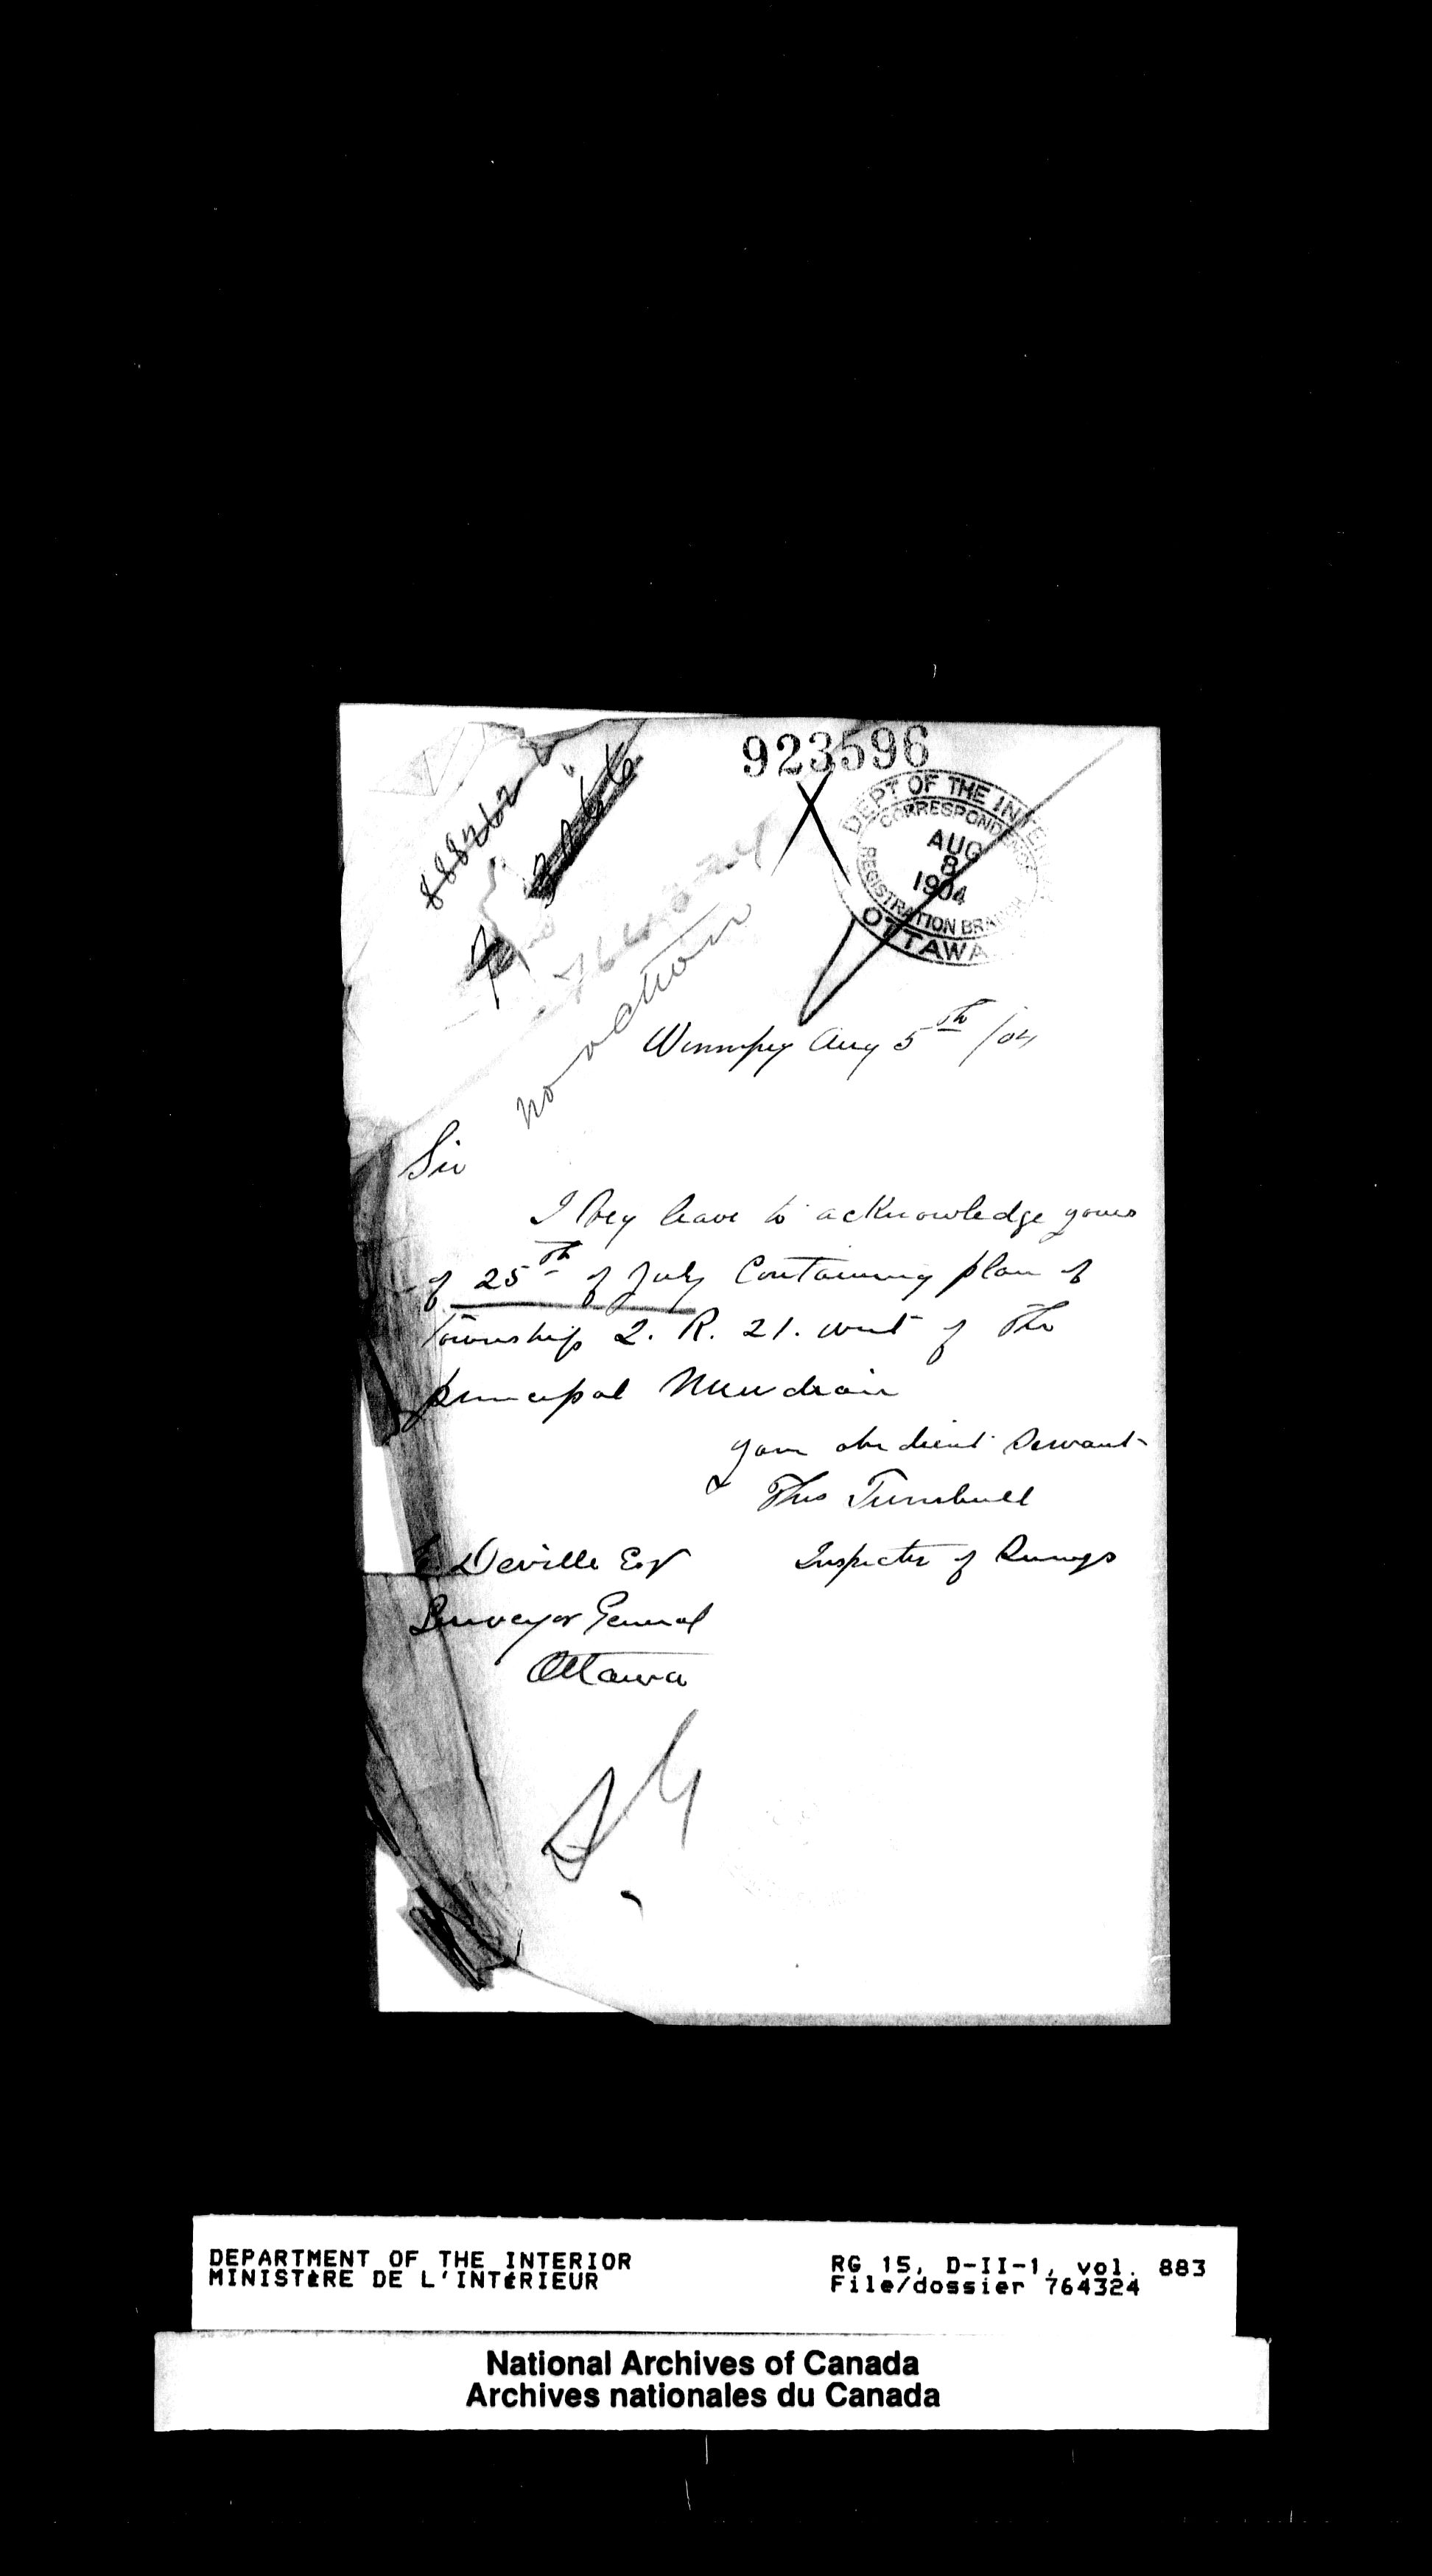 923596
DEPT OF THE INTE
CORRESPONDENCE
AUG
8
1904
REGISTRATION BRANCH
OTTAWA
888262
no action
Winnipeg Aug 5th /04
Sir
I beg leave to acknowledge yours
of 25th of July Containing plan of
Township 2. R. 21. west of The
principal Meridian
your obedient Servant
Thos Turnbull
E Deville Esq
Inspector of Surveys
Surveyor General
Ottawa
DEPARTMENT OF THE INTERIOR
MINISTÈRE DE L'INTÉRIEUR
RG 15, D-II-1, vol. 883
File/dossier 764324
National Archives of Canada
Archives nationales du Canada